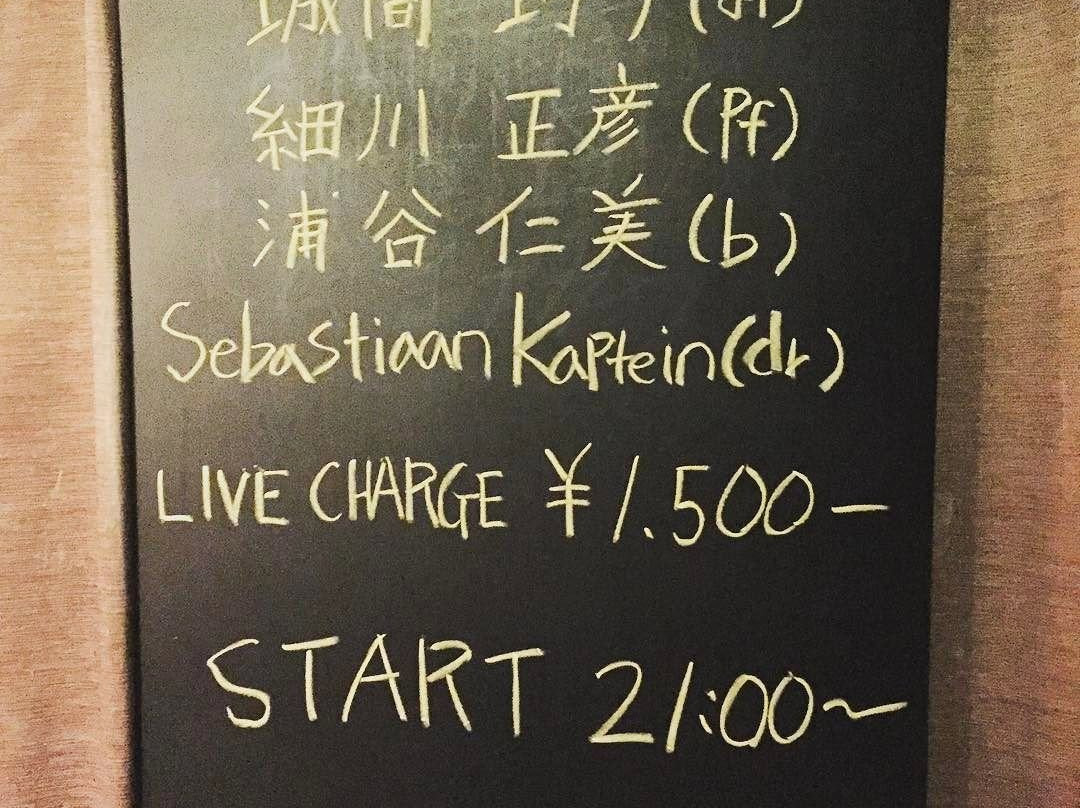 細川 正彦(Pf)
浦谷 仁美(b)
Sebastiaan Kaptein(dr)
LIVE CHARGE ¥1.500-
START 21:00~